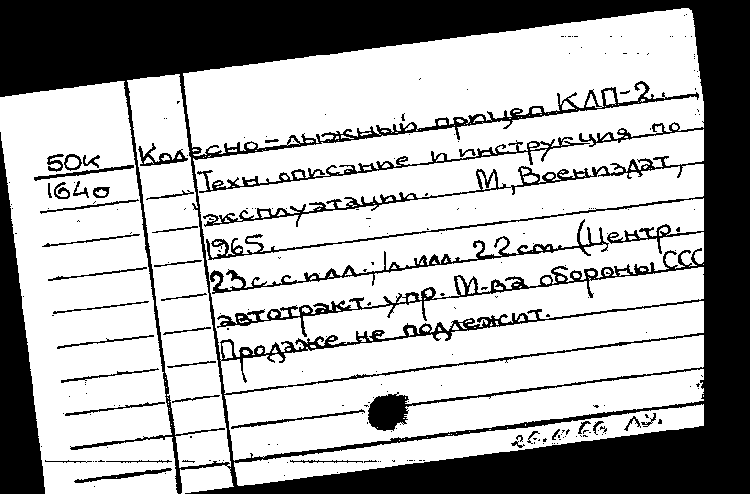 Колесно-лыжный прицеп КЛП-2.
50к
1640
Техн. описание и инструкция по
эксплуатации. М., Воениздат,
1965.
23 с. с илл.; 1 л. илл. 22 см. (Центр.
автотракт. упр. М-ва обороны СССР
Продаже не подлежит.
66 ЛУ.